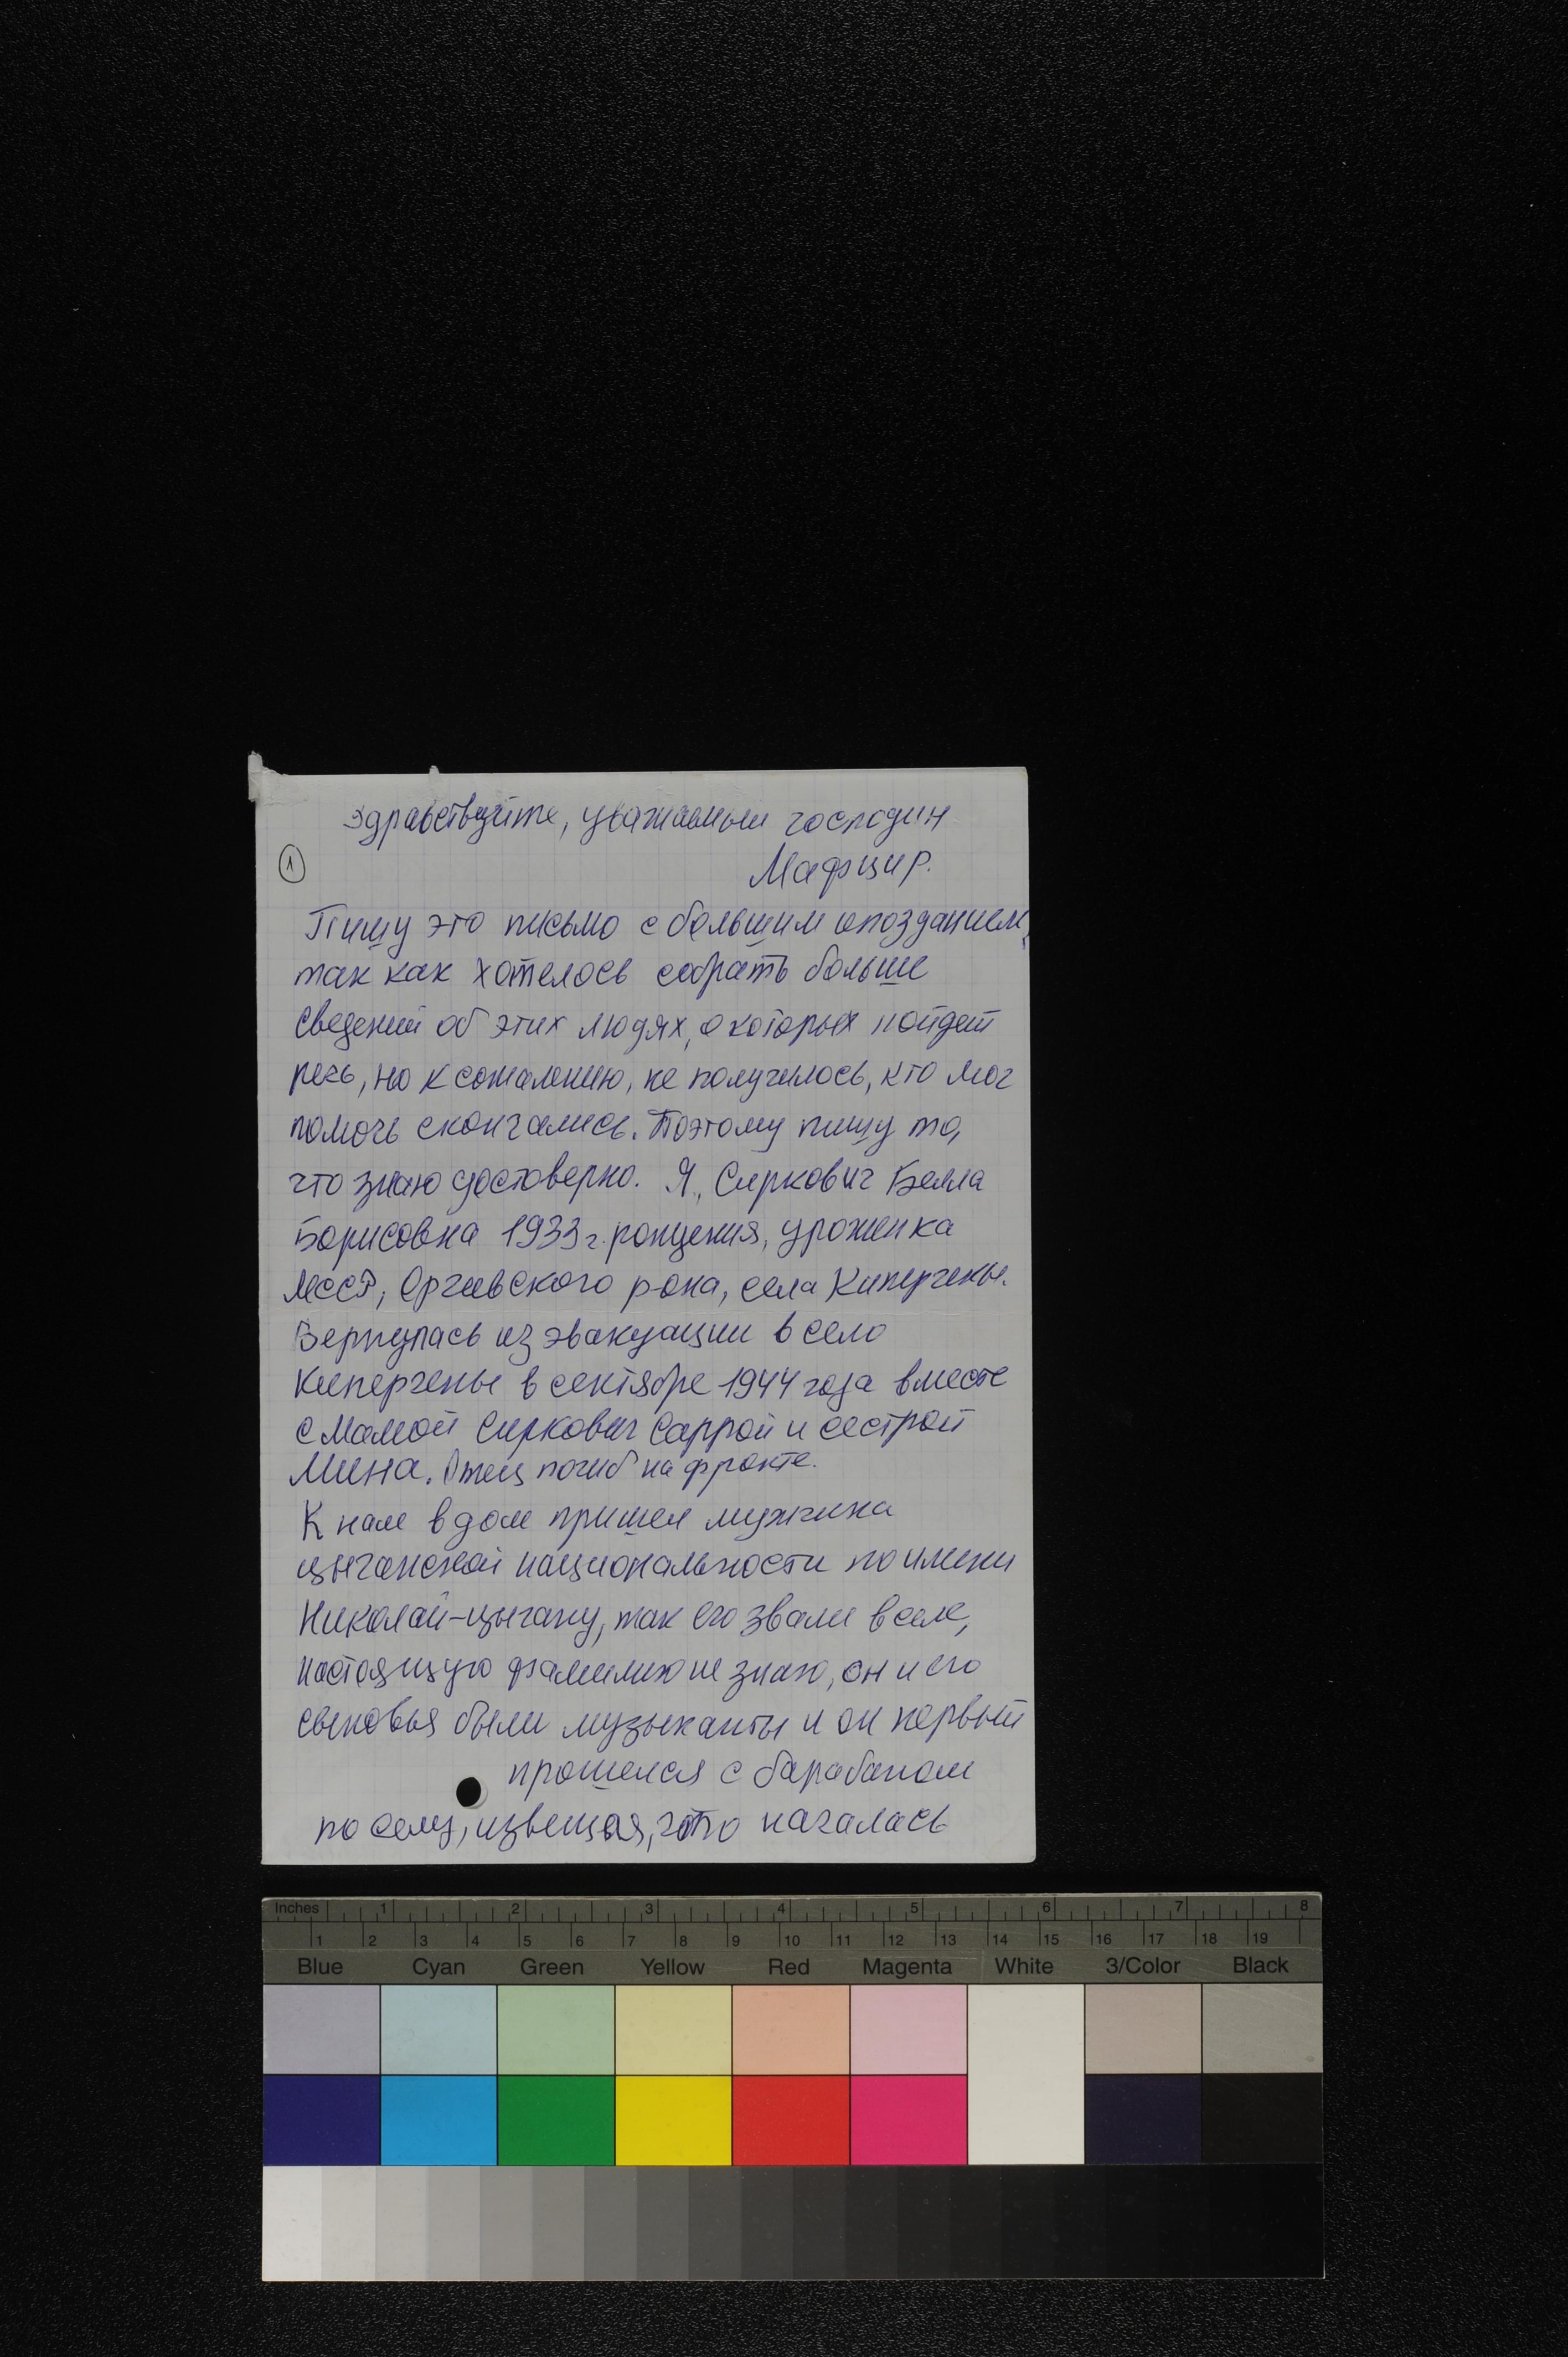 Здравствуйте, уважаемый господин
1
Мафцир.
Пишу это письмо с большим опозданием,
так как хотелось собрать больше
сведений об этих людях, о которых пойдет
речь, но к сожалению, не получилось, кто мог
помочь скончались. Поэтому пишу то,
что знаю достоверно. Я, Сиркович Белла
Борисовна 1933 г. рождения, уроженка
МССР, Оргеевского р-она, села Киперчены.
Вернулась из эвакуации в село
Киперчены в сентябре 1944 года вместе
с мамой Сиркович Саррой и сестрой
Мина. Отец погиб на фронте.
К нам в дом пришел мужчина
цыганской национальности по имени
Николай-цыгану, так его звали в селе,
настоящую фамилию не знаю, он и его
сыновья были музыканты и он первый
прошелся с барабаном
по селу, извещая, что началась
Inches 1 2 3 4 5 6 7 8
1 2 3 4 5 6 7 8 9 10 11 12 13 14 15 16 17 18 19
Blue Cyan Green Yellow Red Magenta White 3/Color Black